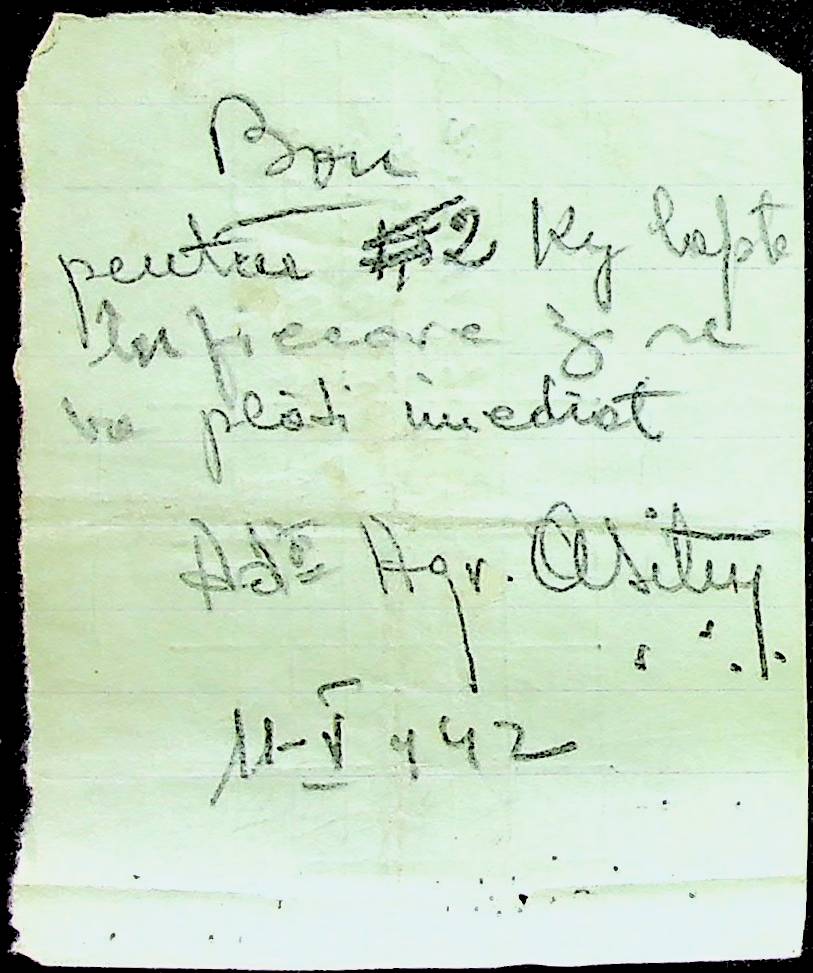 Bon
pentru 2 Kg lapte
In fiecare zi se
va plăti imediat
Agr.
11-V 942